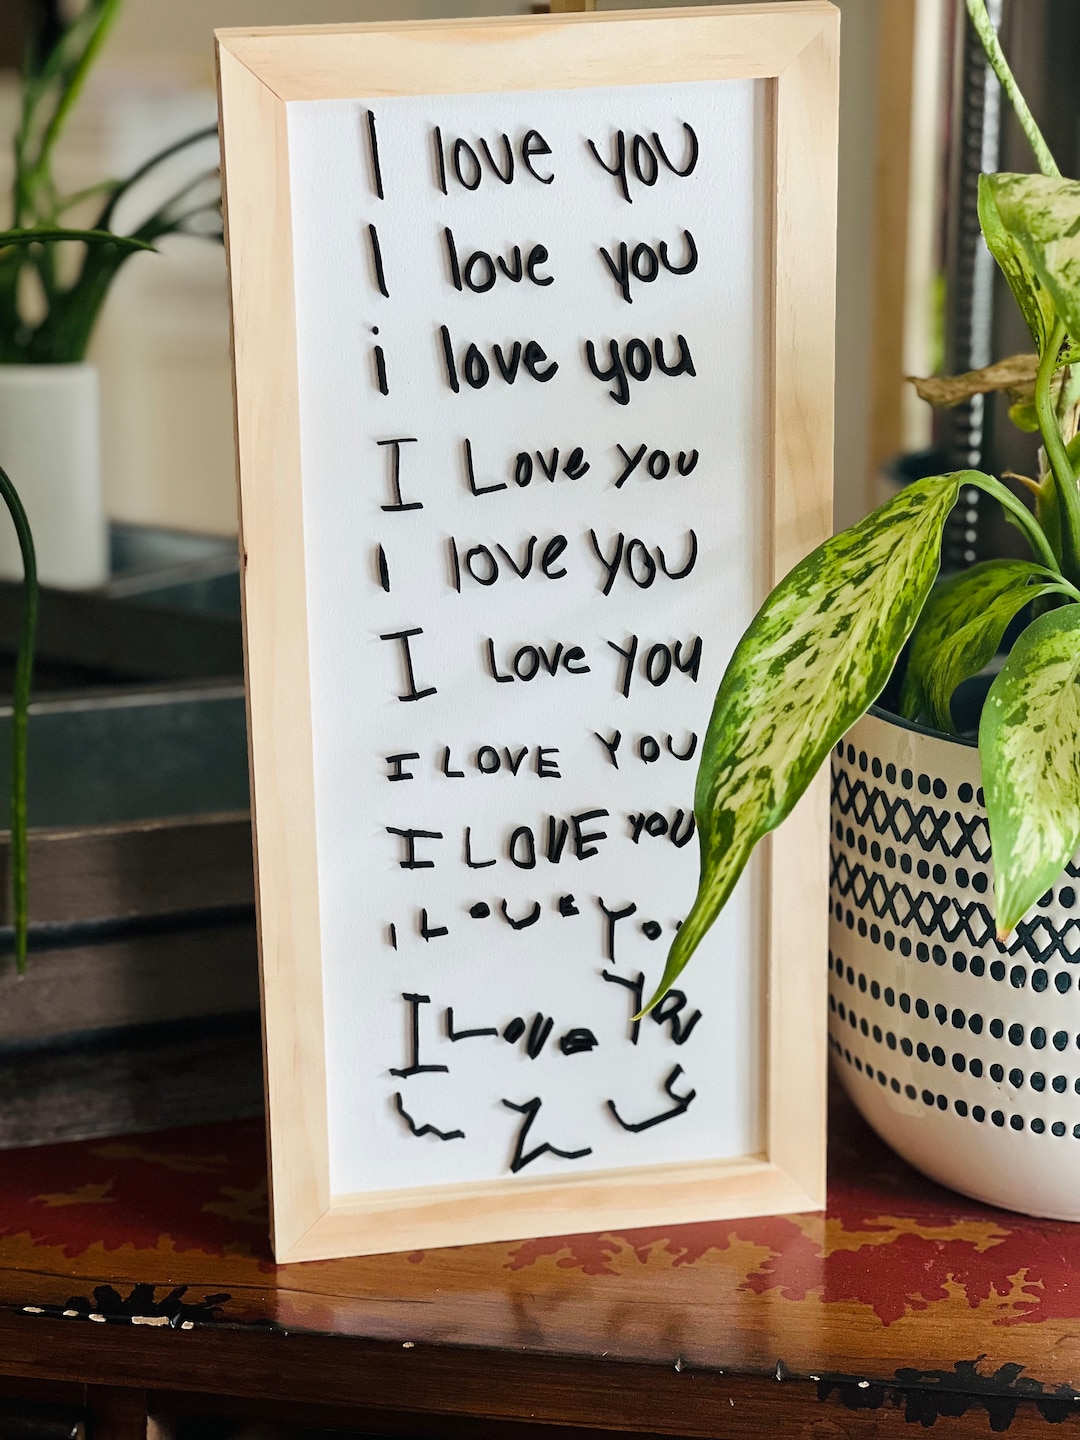 I love you
I love you
i love you
I Love you
I love you
I Love You
I LOVE YOU
I LOVE YOU
I Love Yo
I Love You